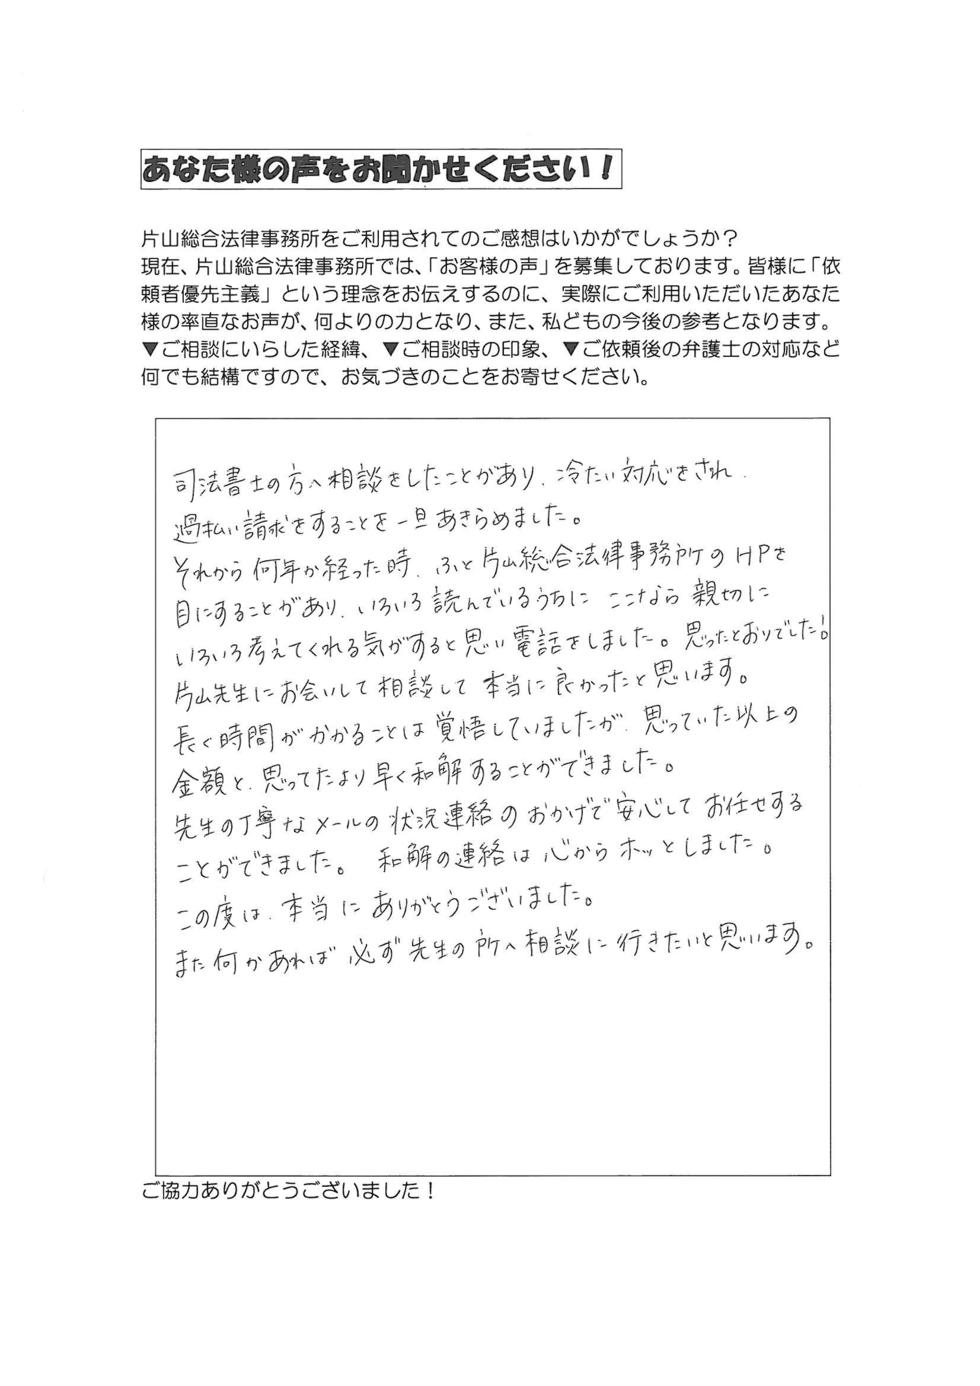 あなた様の声をお聞かせください！
片山総合法律事務所をご利用されてのご感想はいかがでしょうか？
現在、片山総合法律事務所では、「お客様の声」を募集しております。皆様に「依
頼者優先主義」という理念をお伝えするのに、実際にご利用いただいたあなた
様の率直なお声が、何よりの力となり、また、私どもの今後の参考となります。
▼ご相談にいらした経緯、▼ご相談時の印象、▼ご依頼後の弁護士の対応など
何でも結構ですので、お気づきのことをお寄せください。
司法書士の方へ相談をしたことがあり、冷たい対応をされ、
過払い請求をすることを一旦あきらめました。
それから何年か経った時、ふと片山総合法律事務所のHPを
目にすることがあり、いろいろ読んでいるうちに ここなら親切に
いろいろ考えてくれる気がすると思い電話をしました。思ったとおりでした！
片山先生にお会いして相談して本当に良かったと思います。
長く時間がかかることは覚悟していましたが、思っていた以上の
金額と、思ってたより早く和解することができました。
先生の丁寧なメールの状況連絡のおかげで安心してお任せする
ことができました。 和解の連絡は心からホッとしました。
この度は、本当にありがとうございました。
また何かあれば必ず先生の所へ相談に行きたいと思います。
ご協力ありがとうございました！